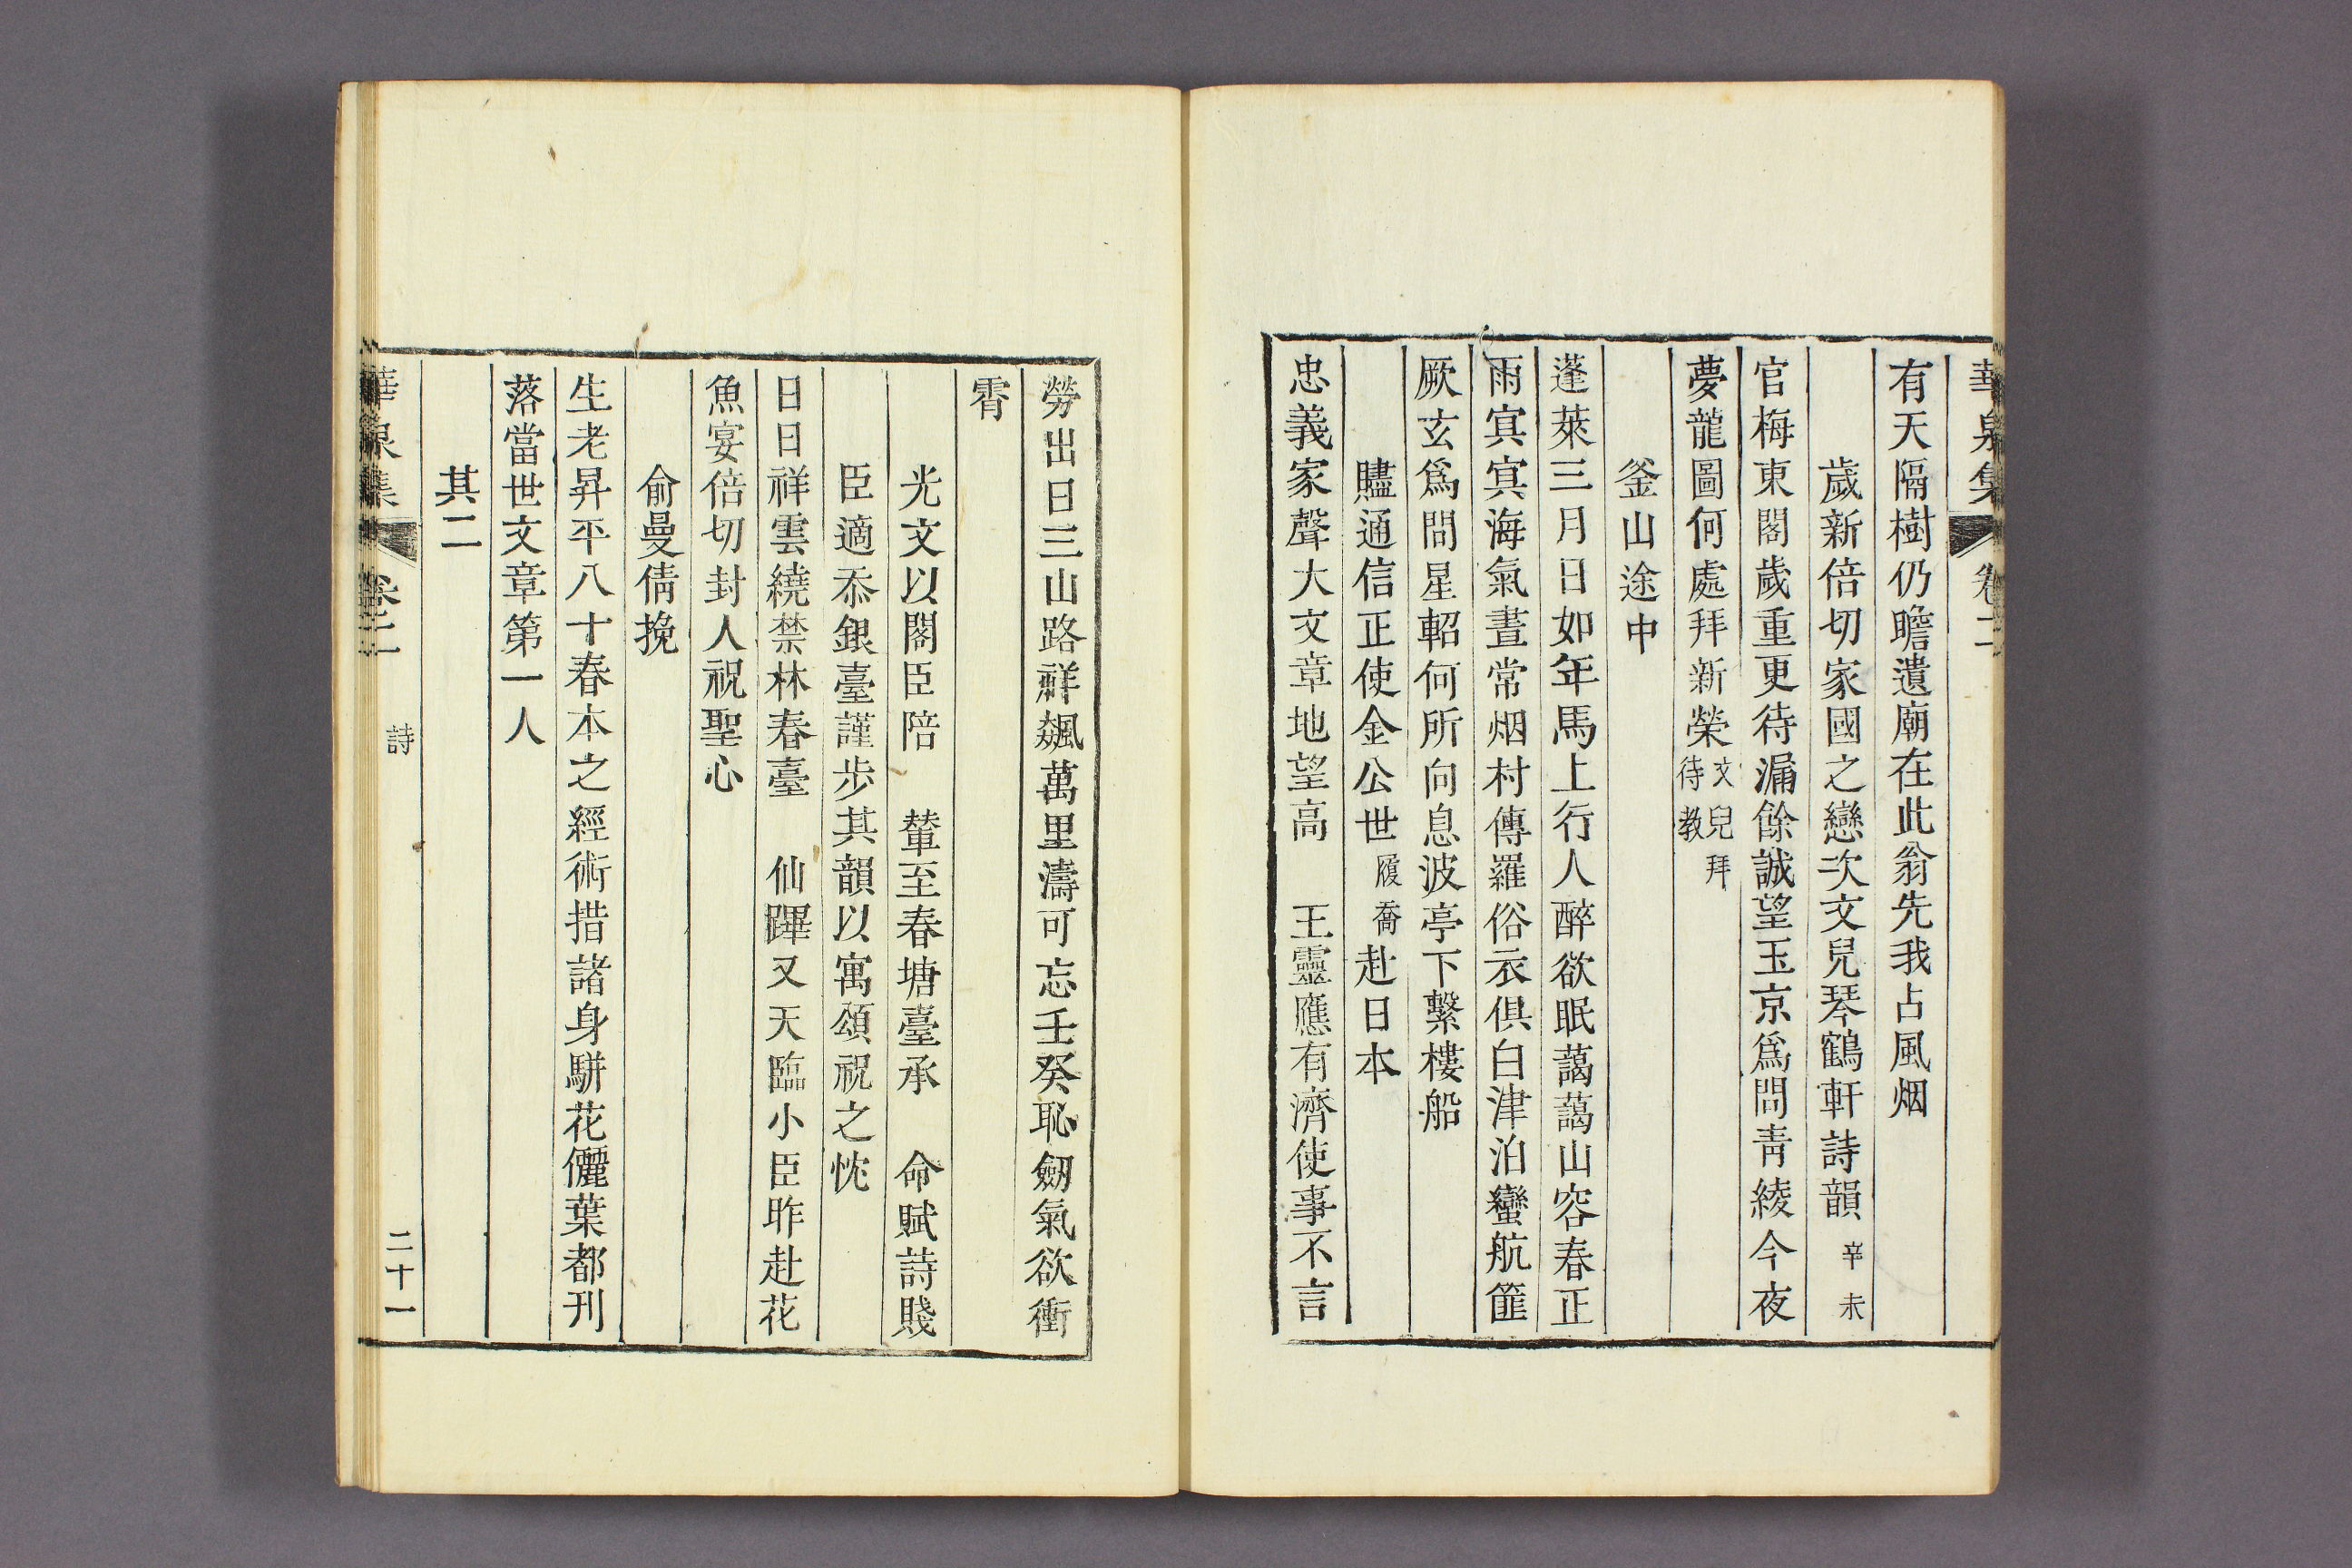 華泉集 卷二
有天隔樹仍瞻遺廟在此翁先我占風烟
歲新倍切家國之戀次文兒琴鶴軒詩韻辛未
官梅東閣歲重更待漏餘誠望玉京爲問靑綾今夜
夢龍圖何處拜新榮文兒拜待教
釜山途中
蓬萊三月日如年馬上行人醉欲眠藹藹山容春正
雨冥冥海氣晝常烟村傳羅俗衣俱白津泊蠻航篚
厥玄爲問星軺何所向息波亭下繫樓船
贐通信正使金公世履喬赴日本
忠義家聲大文章地望高 王靈應有濟使事不言
勞出日三山路祥飊萬里濤可忘壬癸恥劒氣欲衝
霄
光文以閣臣陪 輦至春塘臺承 命賦詩賤
臣適忝銀臺謹步其韻以寓頌祝之忱
日日祥雲繞禁林春臺 仙蹕又天臨小臣昨赴花
魚宴倍切封人祝聖心
俞曼倩挽
生老昇平八十春本之經術措諸身騈花儷葉都刊
落當世文章第一人
其二
華泉集 卷二 詩 二十一